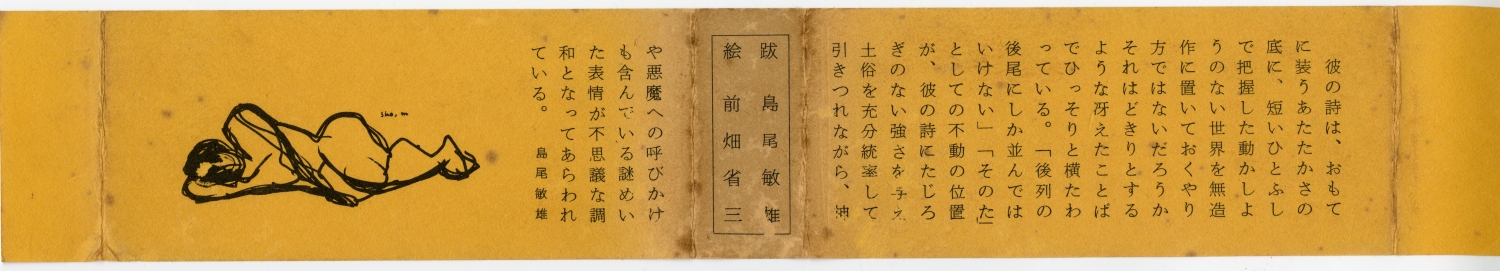 彼の詩は、おもて
に装うあたたかさの
底に、短いひとふし
で把握した動かしよ
うのない世界を無造
作に置いておくやり
方ではないだろうか
それはどきりとする
ような冴えたことば
でひっそりと横たわ
っている。「後列の
後尾にしか並んでは
いけない」「そのた」
としての不動の位置
が、彼の詩にたじろ
ぎのない強さを与え
土俗を充分統率して
引きつれながら、神
跋 島尾敏雄
絵 前畑省三
や悪魔への呼びかけ
も含んでいる謎めい
た表情が不思議な調
和となってあらわれ
ている。 島尾敏雄
sho, m